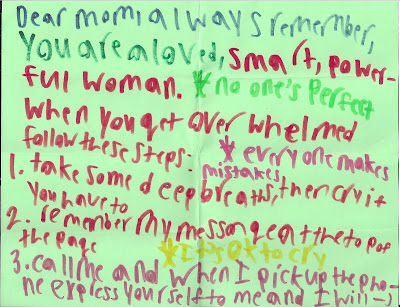 Dear mom, always remember,
You are a loved, smart, power-
ful woman. * no one's Perfect
when you get over whelmed
follow these steps: * every one makes
mistakes
1. take some deep breaths, then cry if
you have to
2. remember my messange at the top of
the page *It's ok to cry
3. call me and when I pick up the pho-
ne express yourself to me and I will →